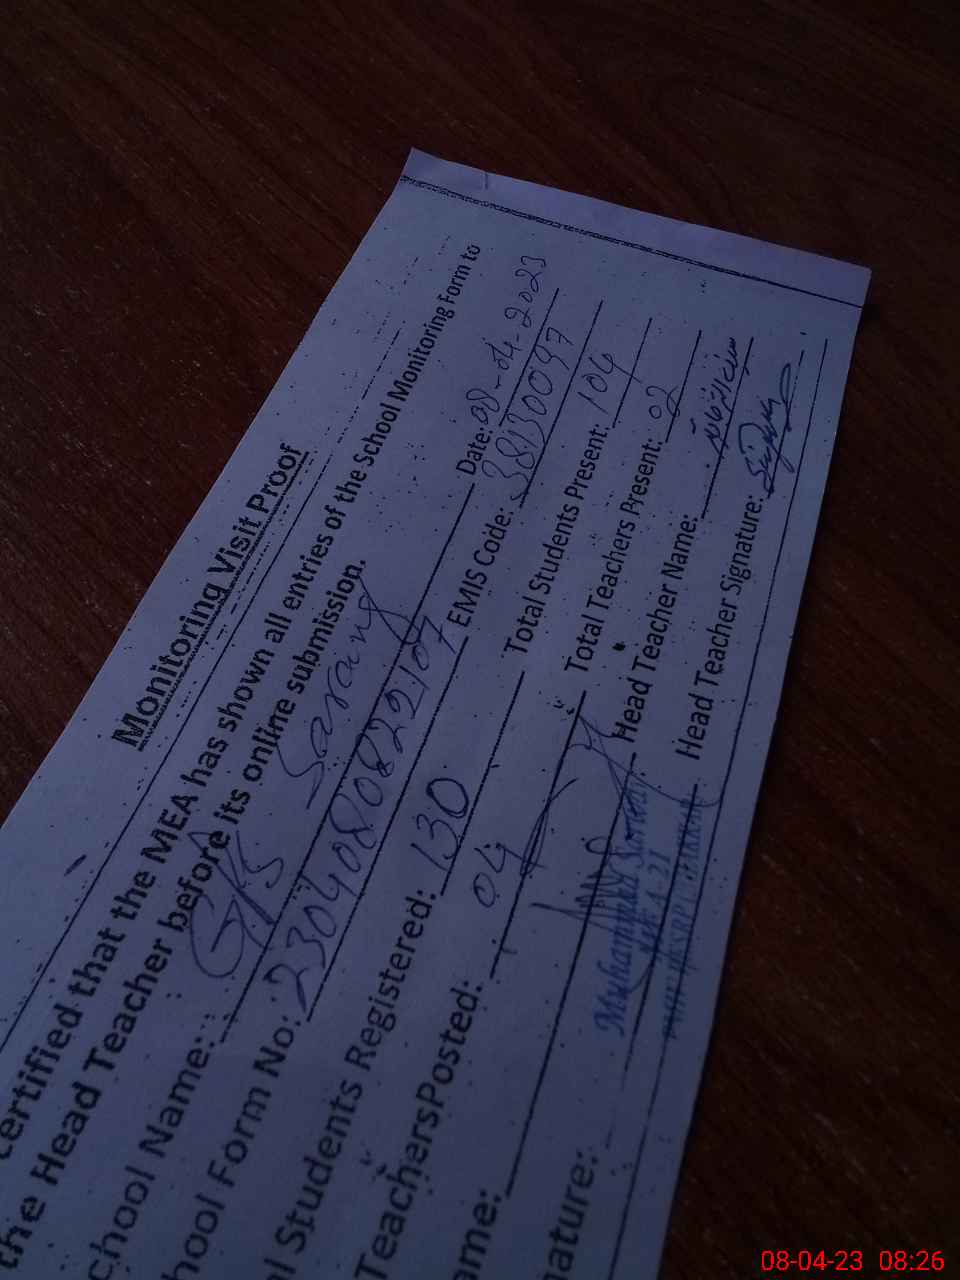 Monitoring Visit Proof
certified that the MEA has shown all entries of the School Monitoring Form to
the Head Teacher before its online submission.
chool Name: G/S Sarang Date: 08-04-2023
hool Form No: 2304080822107 EMIS Code: 38130097
l Students Registered: 130 Total Students Present: 104
TeachersPosted: 04 Total Teachers Present: 02
ame: Head Teacher Name:
ature: Muhammad Sarwar Head Teacher Signature:
MEA-21
08-04-23 08:26